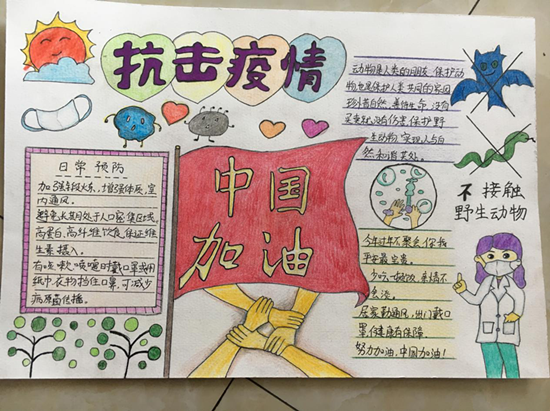 抗击疫情
动物是人类的朋友,保护动
物也是保护人类共同的家园
珍惜自然,善待生命,没有
买卖就没有伤害,保护野
生动物,实现人与自
然和谐共处。
日常预防
加强锻炼,增强体质,室
内通风。
避免长时间处于人口密集区域。
高蛋白,高纤维饮食,保证维
生素摄入。
有咳嗽、喷嚏时戴口罩或用
纸巾、衣物挡住口鼻,可减少
病原菌传播。
中国
加油
不接触
野生动物
今年过年不聚会,你我
平安最重要。
少吃一顿饭,亲情不
会淡。
居家勤通风,出门戴口
罩,健康有保障。
努力加油,中国加油!